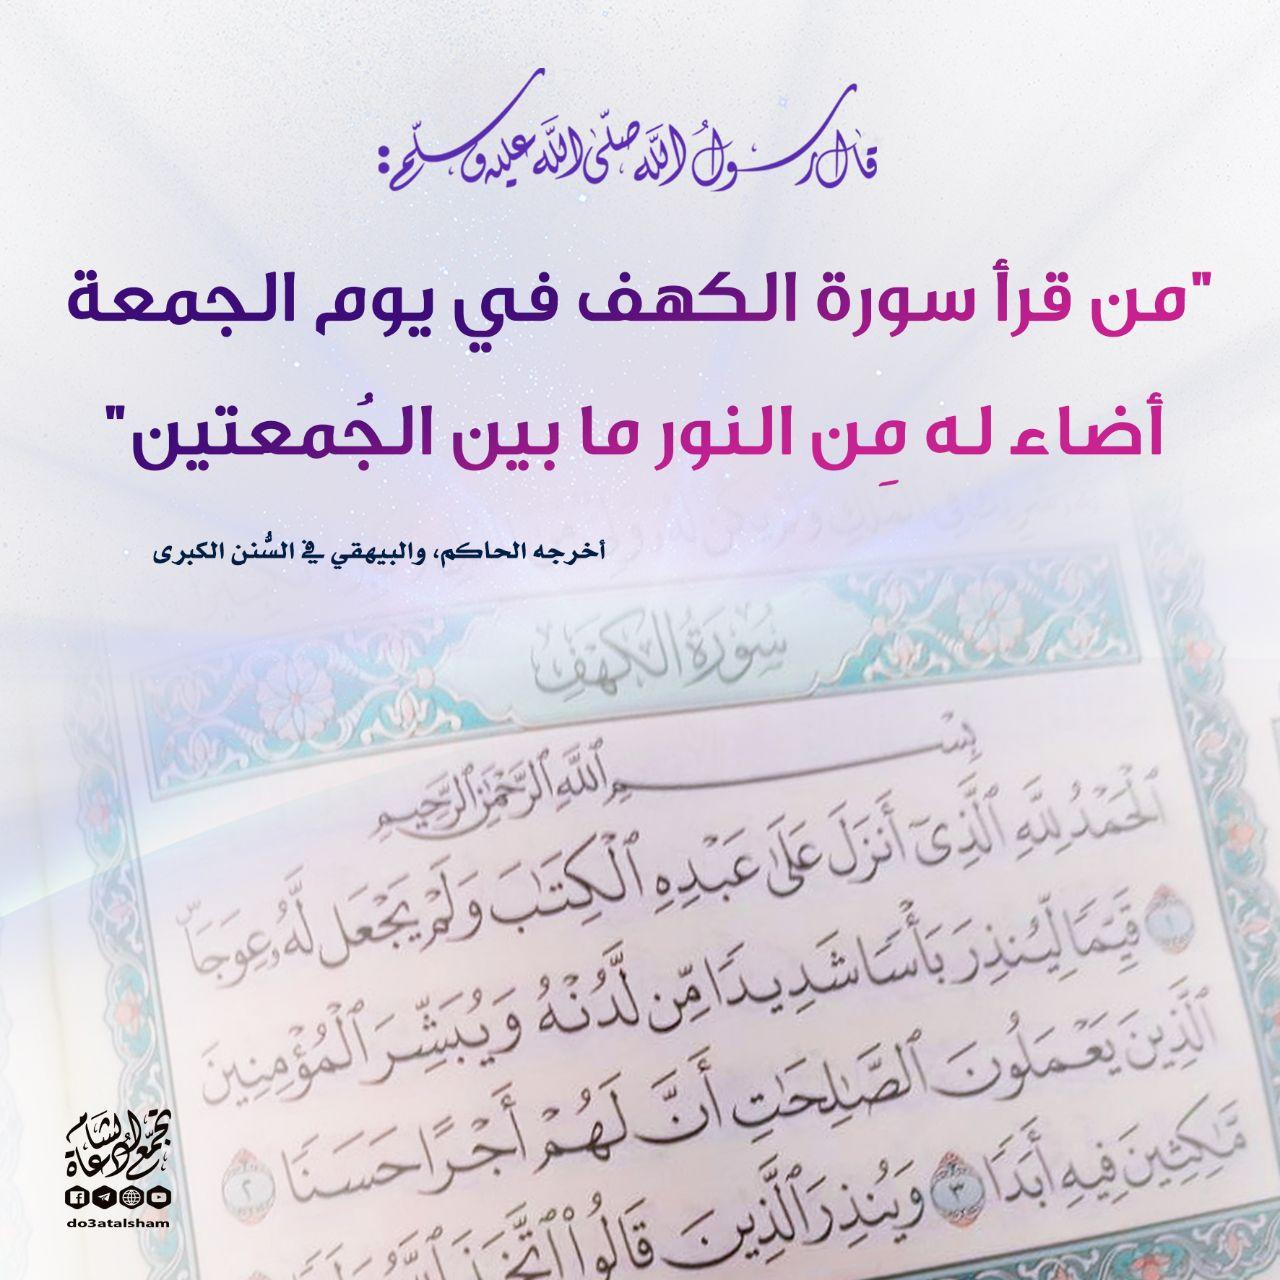 قال رسولُ الله صلّى الله عليه وسلّم:
"من قرأ سورة الكهف في يوم الجمعة
أضاء له مِن النور ما بين الجُمعتين"
أخرجه الحاكم، والبيهقي في السُّنن الكبرى
سُورَةُ الكَهْفِ
بِسْمِ ٱللَّهِ ٱلرَّحْمَٰنِ ٱلرَّحِيمِ
ٱلْحَمْدُ لِلَّهِ ٱلَّذِىٓ أَنزَلَ عَلَىٰ عَبْدِهِ ٱلْكِتَٰبَ وَلَمْ يَجْعَل لَّهُۥ عِوَجَاۜ
١ قَيِّمًا لِّيُنذِرَ بَأْسًا شَدِيدًا مِّن لَّدُنْهُ وَيُبَشِّرَ ٱلْمُؤْمِنِينَ
ٱلَّذِينَ يَعْمَلُونَ ٱلصَّٰلِحَٰتِ أَنَّ لَهُمْ أَجْرًا حَسَنًا ٢
مَّٰكِثِينَ فِيهِ أَبَدًا ٣ وَيُنذِرَ ٱلَّذِينَ قَالُوا۟ ٱتَّخَذَ ٱللَّهُ وَلَدًا
تجمّع دُعاة الشام
do3atalsham